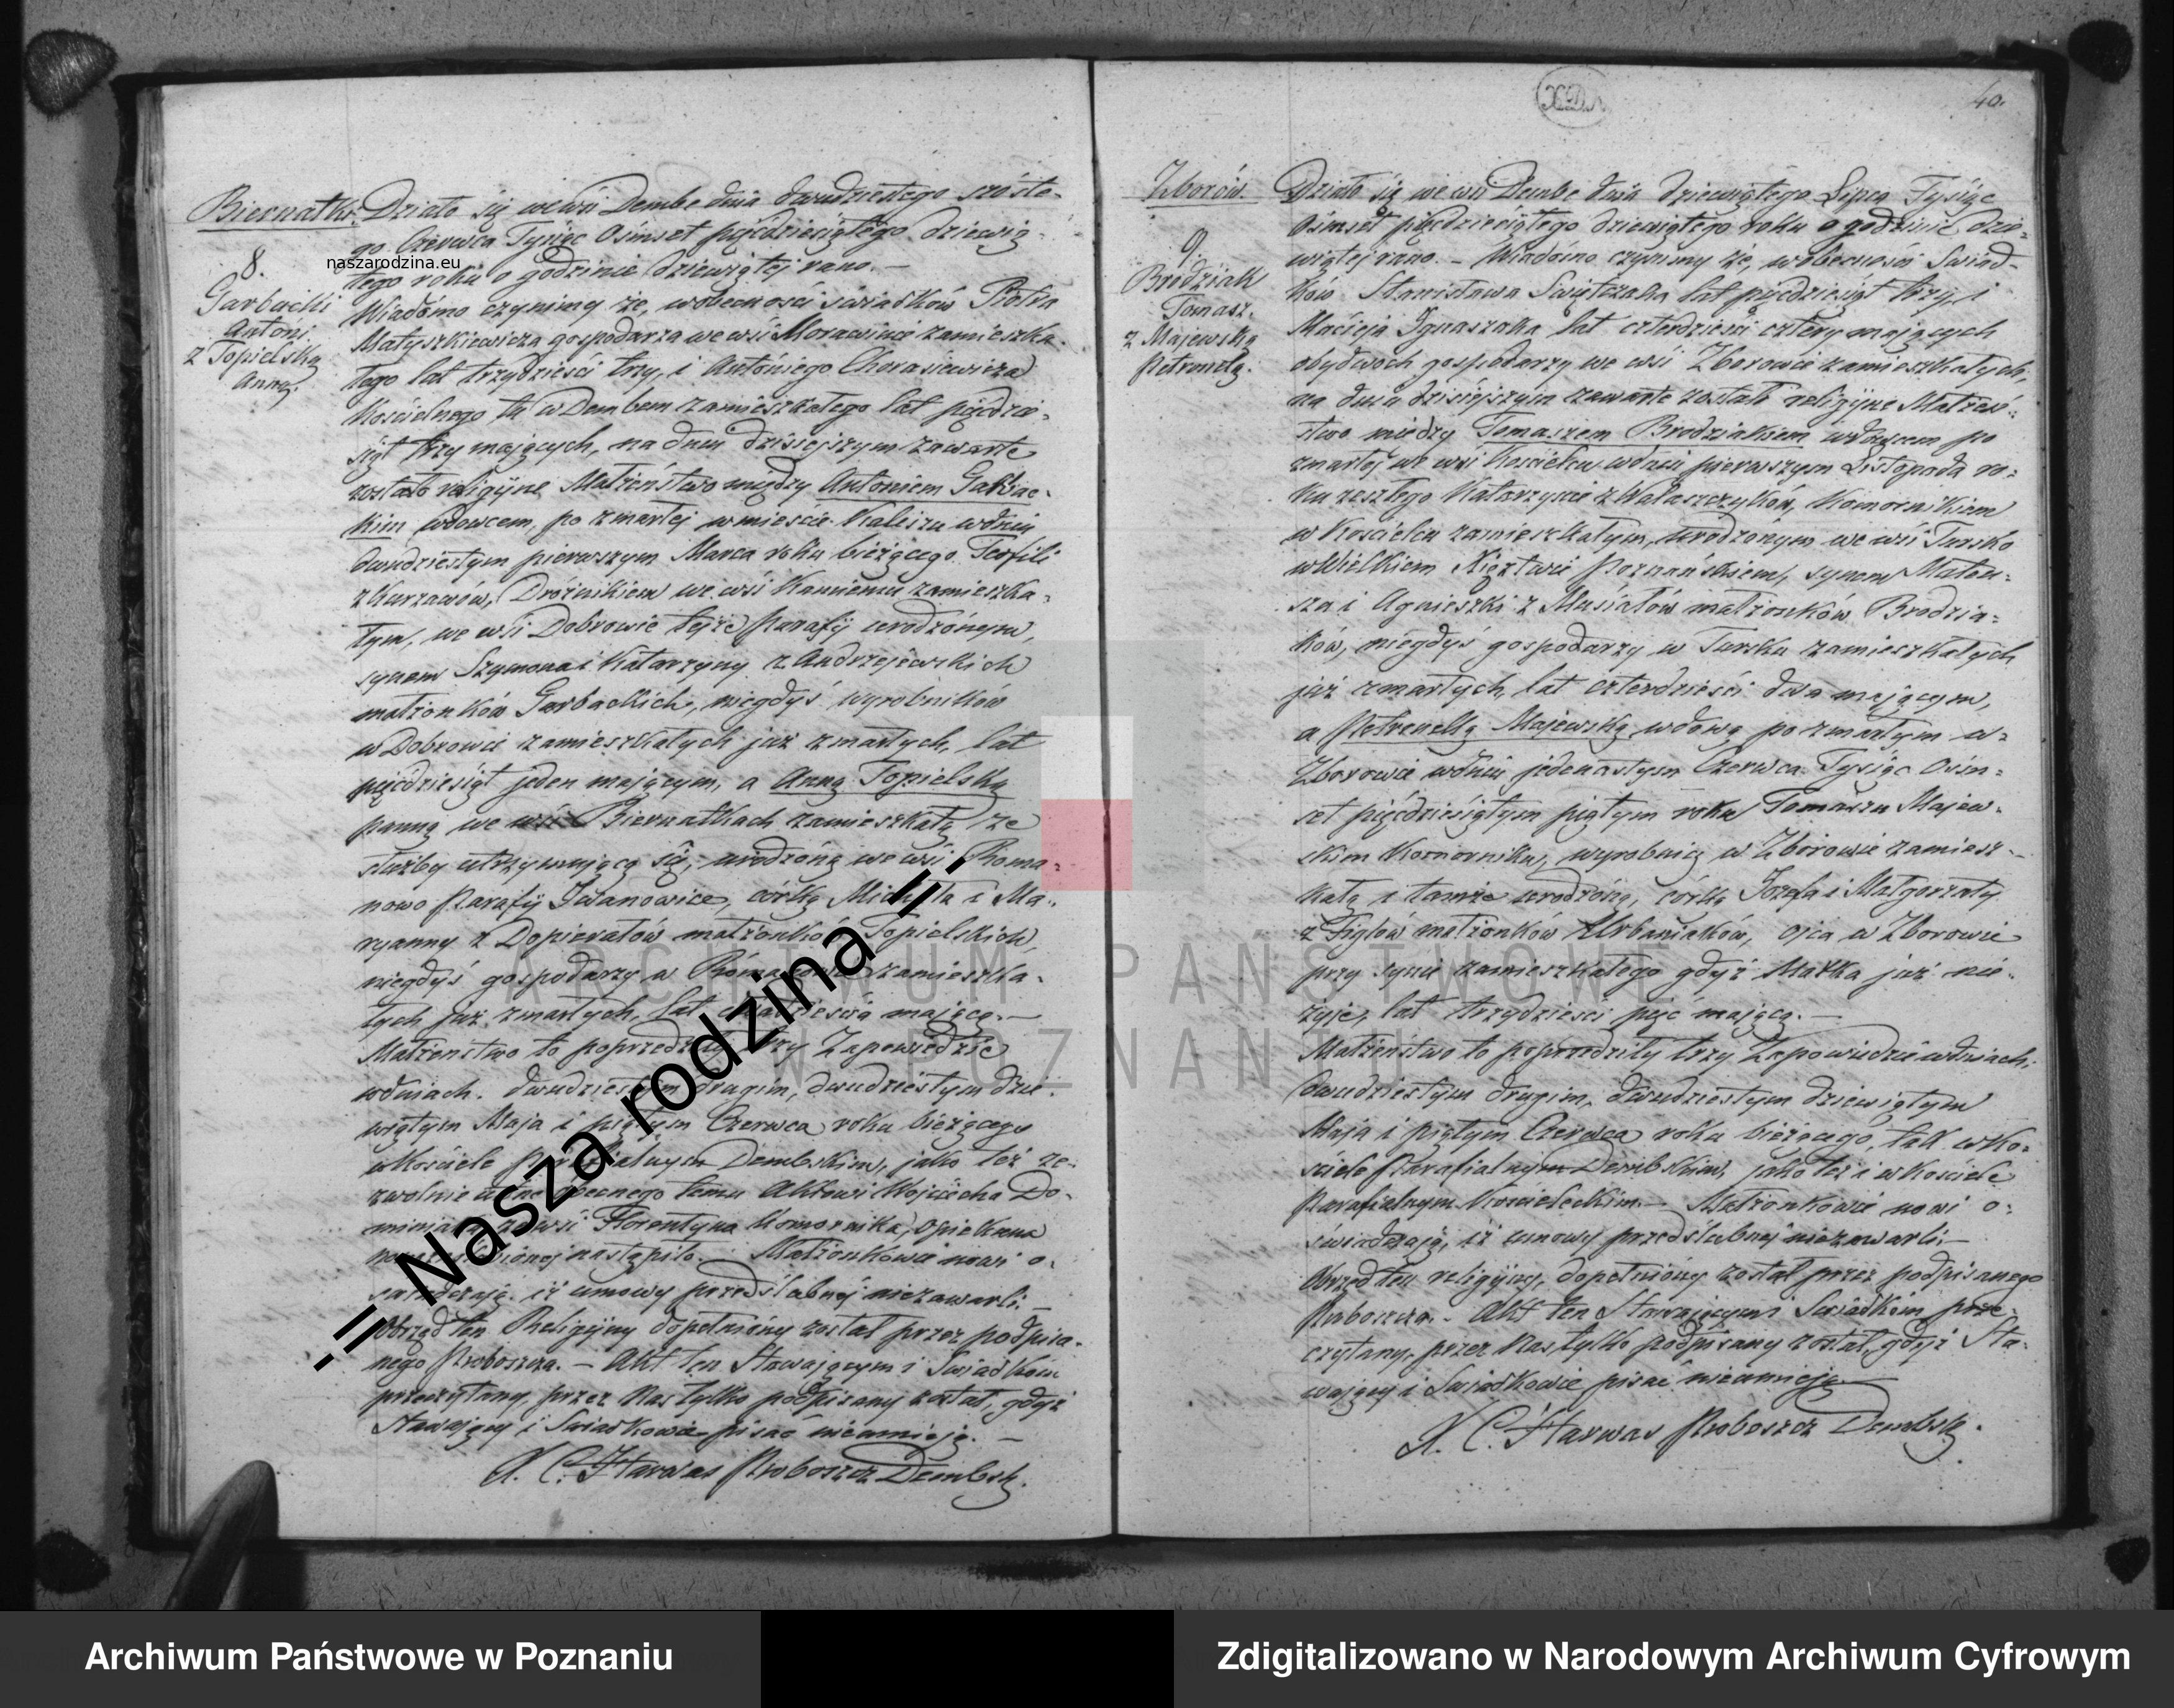 Biernatki.
8.
Garbacki
Antoni
z Topielską
Anną.
Działo się we wsi Dembe dnia dwudziestego szóste-
go Czerwca Tysiąc Ośmset pięćdziesiątego dziewią-
tego roku o godzinie dziewiątej rano. —
Wiadomo czynimy że, w obecności świadków Piotra
Matyszkiewicza gospodarza we wsi Morawinie zamieszka-
łego lat trzydzieści trzy, i Antoniego Chorasiewicza
Kościelnego tu w Dembem zamieszkałego lat pięćdzie-
siąt trzy mających, na dniu dzisiejszym zawarte
zostało religijne Małżeństwo między Antoniem Garbac-
kim wdowcem, po zmarłej w mieście Kaliszu w dniu
dwudziestym pierwszym Marca roku bieżącego Teofili
z Kurzawów, Dróżnikiem we wsi Kamieniu zamieszka-
łym, we wsi Dobrowie tejże Parafij urodzonym,
synem Szymona i Katarzyny z Andrzejewskich
małżonków Garbackich, niegdyś wyrobników
w Dobrowie zamieszkałych już zmarłych, lat
pięćdziesiąt jeden mającym, a Anną Topielską
panną we wsi Biernatkach zamieszkałą ze
służby utrzymującą się, urodzoną we wsi Roma-
nowo Parafij Iwanowice, córką Michała i Ma-
ryanny z Dopierałów małżonków Topielskich,
niegdyś gospodarzy w Romanowie zamieszka-
łych już zmarłych, lat mającą. —
Małżeństwo to poprzedziły trzy Zapowiedzie
w dniach. dwudziestym drugim, dwudziestym dzie-
wiątym Maja i piątym Czerwca roku bieżącego
w Kościele Parafialnym Dembskim, jako też ze-
zwolnie ustne obecnego temu Aktowi Wojciecha Do-
miniaka ze wsi Florentyna Komornika, Opiekuna
nastąpiło. — Małżonkowie nowi o-
świadczają, iż umowy przedślubnej niezawarli. —
Obrzęd ten Religijny dopełniony został przez podpisa-
nego Proboszcza. — Akt ten Stawającym i Świadkom
przeczytany, przez Nas tylko podpisany został, gdyż
Stawający i Świadkowie pisać nieumieją. —
X. C. Harwas Proboszcz Dembsk.
naszarodzina.eu
-=Nasza rodzina=-
40.
Zborów.
9.
Brodziak
Tomasz.
z Majewską
Petronelą.
Działo się we wsi Dembe dnia dziewiątego Lipca Tysiąc
Ośmset pięćdziesiątego dziewiątego roku o godzinie dzie-
wiątej rano. — Wiadomo czynimy że, w obecności Świad-
ków Stanisława Świątczaka lat pięćdziesiąt trzy, i
Macieja Ignaszaka lat czterdzieści cztery mających
obydwóch gospodarzy we wsi Zborowie zamieszkałych,
na dniu dzisiejszym zawarte zostało religijne Małżeń-
stwo między Tomaszem Brodziakiem wdowcem po
zmarłej we wsi Kościelcu w dniu pierwszym Listopada ro-
ku zeszłego Katarzynie z Walaszczyków, Komornikiem
w Kościelcu zamieszkałym, urodzonym we wsi Tursko
w Wielkiem Księztwie Poznańskiem, synem Mateu-
sza i Agnieszki z Musiałów małżonków Brodzia-
ków, niegdyś gospodarzy w Tursku zamieszkałych
już zmarłych, lat czterdzieści dwa mającym,
a Petronellą Majewską wdową po zmarłym w
Zborowie w dniu jedenastym Czerwca Tysiąc Ośm-
set pięćdziesiątym piątym roku Tomaszu Majew-
skim Komorniku, wyrobnicą w Zborowie zamiesz-
kałą i tamże urodzoną, córką Józefa i Małgorzaty
z Figlów małżonków Urbaniaków, ojca w Zborowie
przy synie zamieszkałego gdyż Matka już nie-
żyje, lat trzydzieści pięć mającą. —
Małżeństwo to poprzedziły trzy Zapowiedzie w dniach,
dwudziestym drugim, dwudziestym dziewiątym
Maja i piątym Czerwca roku bieżącego, tak w Ko-
ściele Parafialnym Dembskim, jako też i w Kościele
Parafialnym Kościeleckim. — Małżonkowie nowi o-
świadczają, iż umowy przedślubnej niezawarli. —
Obrzęd ten religijny, dopełniony został przez podpisanego
Proboszcza. — Akt ten Stawającym i Świadkom prze-
czytany, przez Nas tylko podpisany został, gdyż Sta-
wający i Świadkowie pisać nieumieją. —
X. C. Harwas Proboszcz Dembsk.
ARCHIWUM PAŃSTWOWE
W POZNANIU
Archiwum Państwowe w Poznaniu
Zdigitalizowano w Narodowym Archiwum Cyfrowym